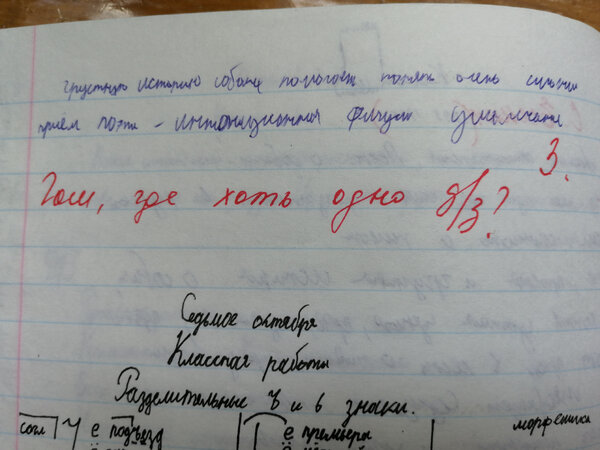 грустную историю собаки помогает понять очень сильный
приём поэта - интонационная фигура умолчания
3.
Том, где хоть одно д/з?
Седьмое октября
Классная работа
Разделительные ъ и ь знаки.
согл ё подъезд ё премьеры морфемика